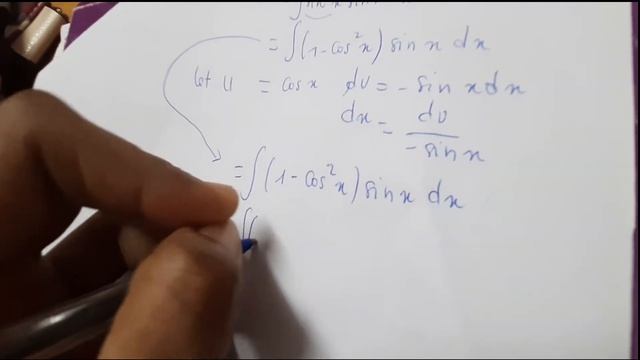 = ∫(1-cos²x) sin x dx
let u = cos x du = - sin x dx
dx = du / - sin x
= ∫(1-cos²x) sin x dx
∫(